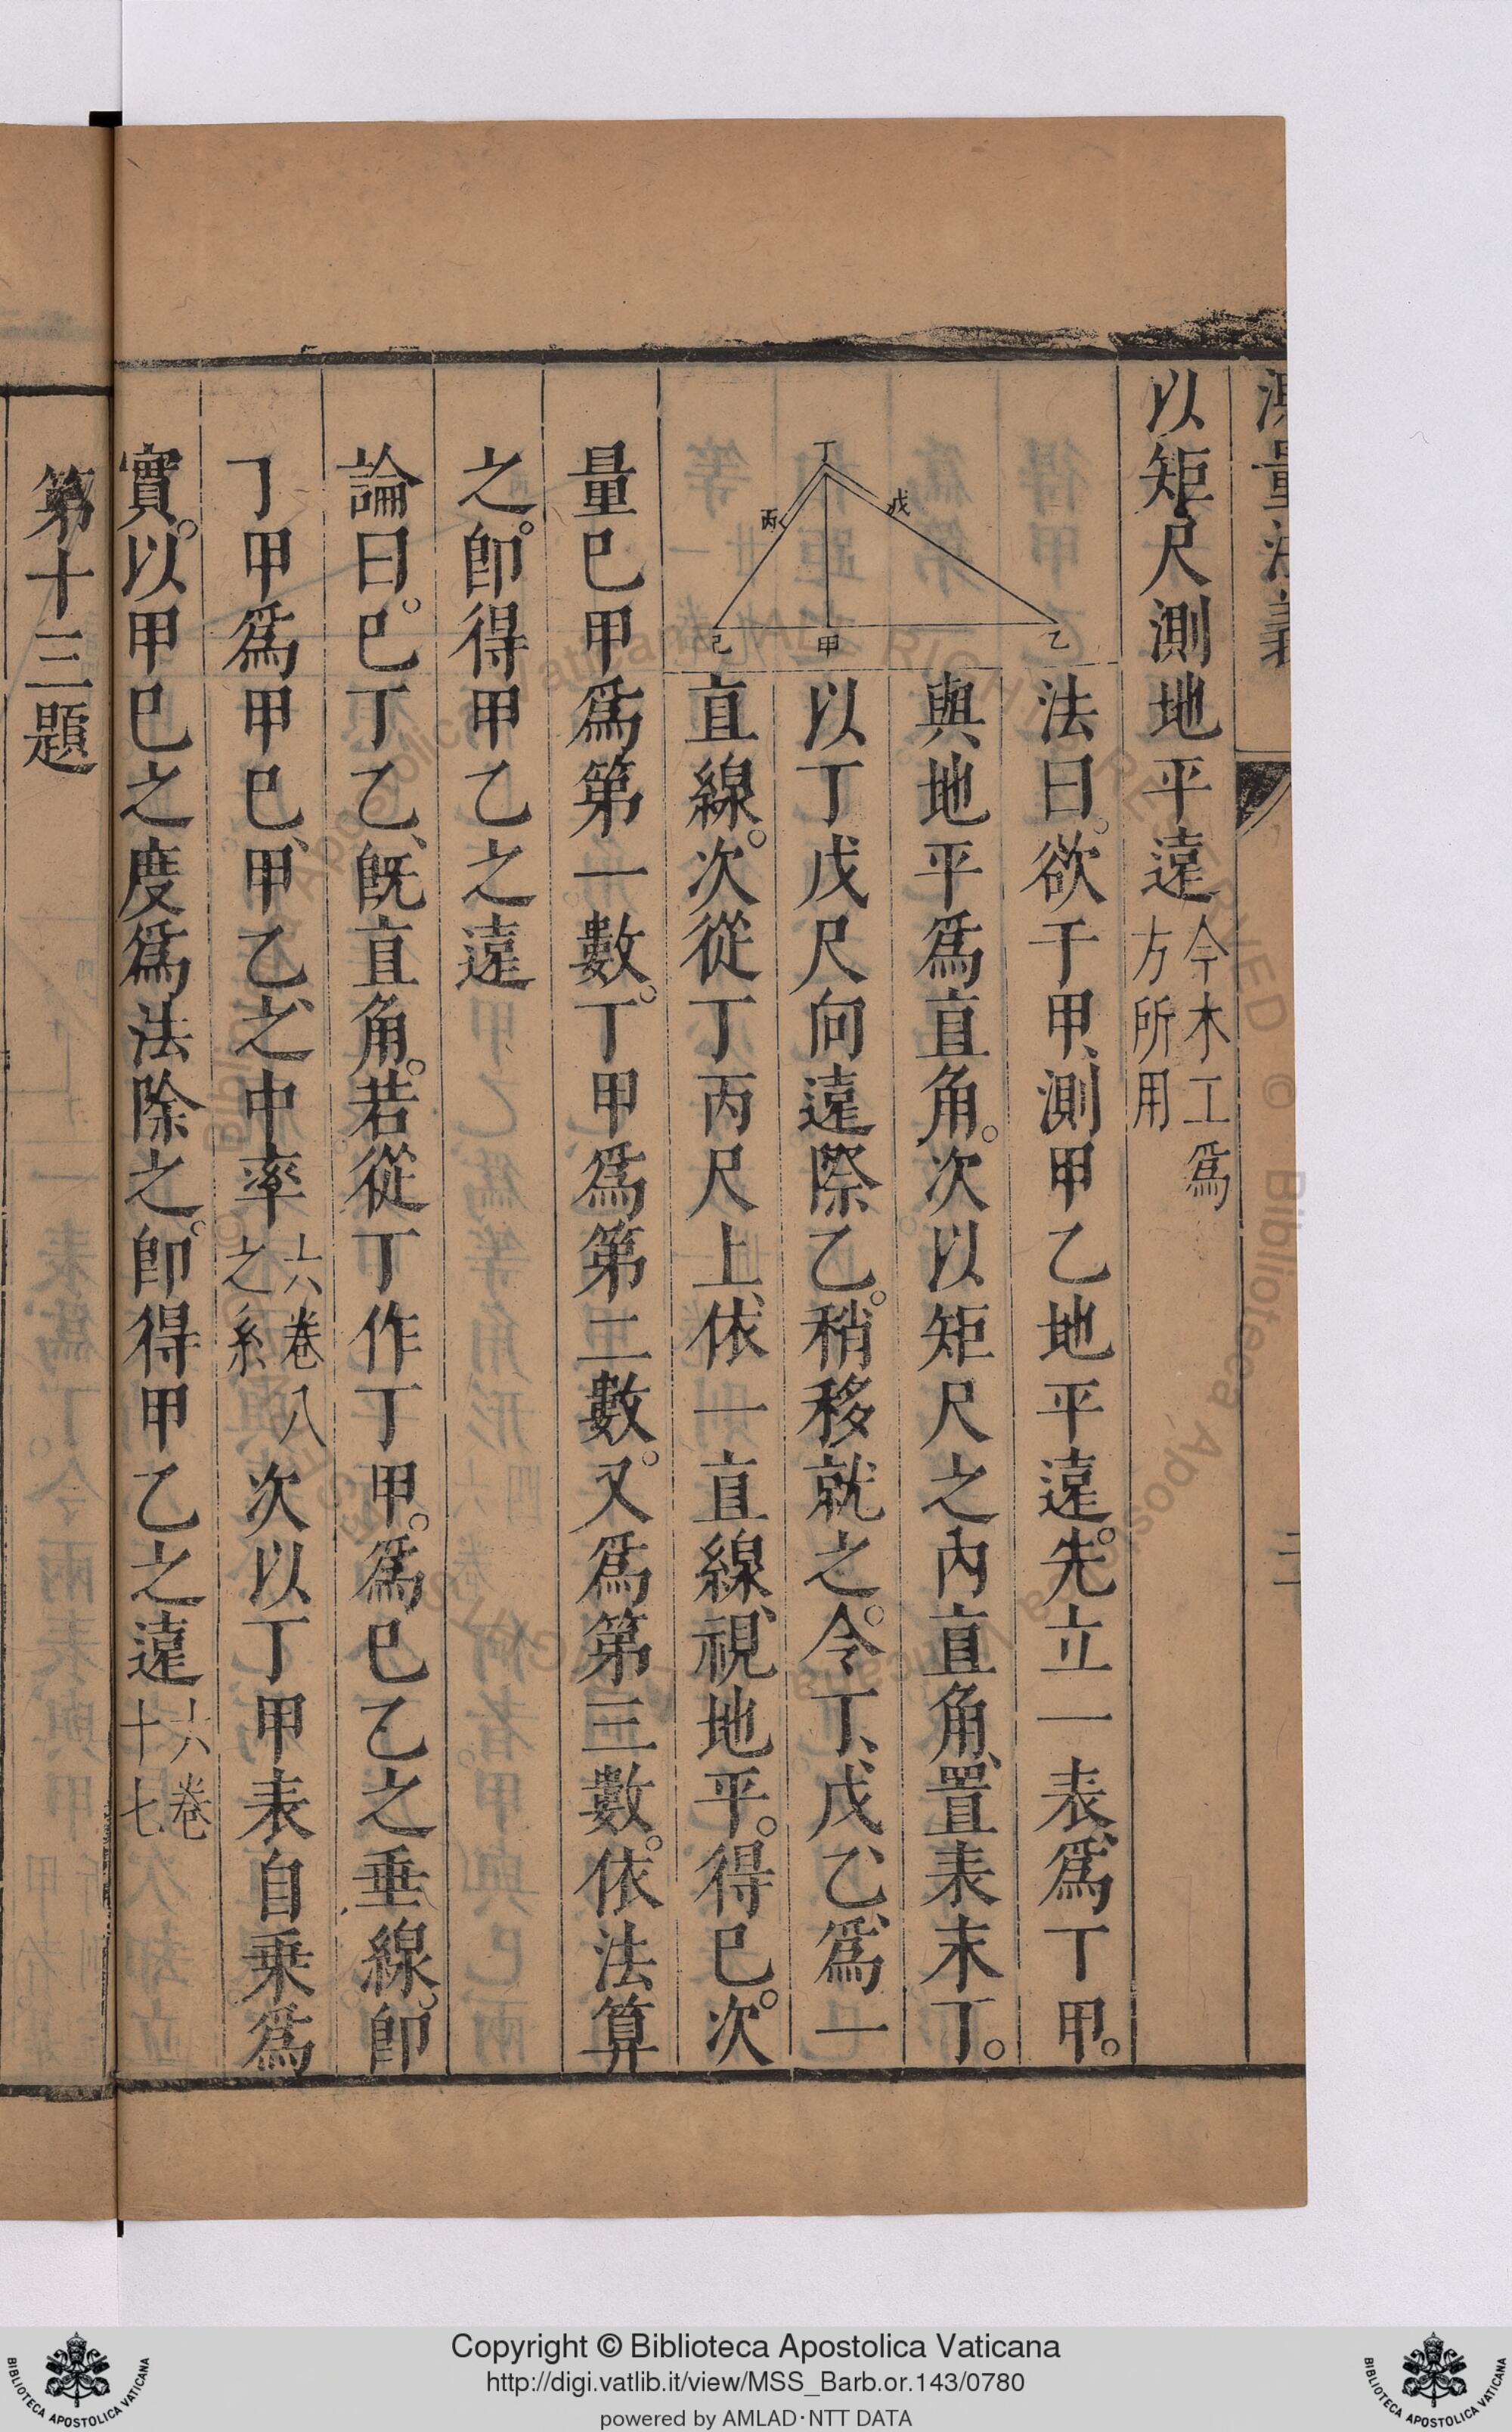 測量法義
以矩尺測地平遠今木工爲方所用
法曰。欲于甲、測甲乙地平遠。先立一表、爲丁甲。
與地平爲直角。次以矩尺之內直角、置表末丁。
以丁戊尺向遠際乙。稍移就之。令丁、戊、乙、爲一
直線。次從丁丙尺上、依一直線、視地平。得巳。次
量巳甲爲第一數。丁甲爲第二數。又爲第三數。依法算
之。卽得甲乙之遠
論曰。巳丁乙、旣直角。若從丁作丁甲。爲巳乙之垂線。卽
丁甲爲甲巳、甲乙、之中率六卷八之系次以丁甲表自乗爲
實。以甲巳之度爲法除之。卽得甲乙之遠六卷十七
第十三題
丁
戊
丙
己
甲
乙
Copyright © Biblioteca Apostolica Vaticana
http://digi.vatlib.it/view/MSS_Barb.or.143/0780
powered by AMLAD·NTT DATA
BIBLIOTECA APOSTOLICA VATICANA
BIBLIOTECA APOSTOLICA VATICANA